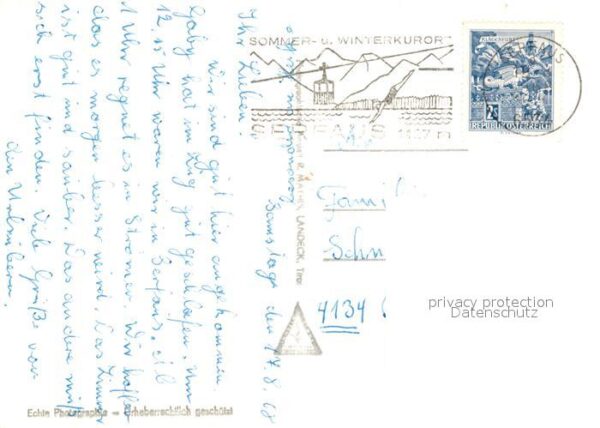 Samstag, den 17.8.68
Ihr Lieben,
wir sind gut hier angekommen
Gaby hat im Zug gut geschlafen. Um
12.15 Uhr waren wir in Serfaus, seit
1 Uhr regnet es in Strömen. Wir hoffen
das es morgen besser wird. Das Zimmer
ist gut und sauber. Das andere muß
sich erst finden. Viele Grüße von
den Urlaubern.
SOMMER- u. WINTERKURORT
SERFAUS 1427 m
SERFAUS
KLAGENFURT
REPUBLIK ÖSTERREICH
R. MATHIS, LANDECK, Tirol
Famili
Sohn
4134
privacy protection
Datenschutz
Echte Photographie – Urheberrechtlich geschützt